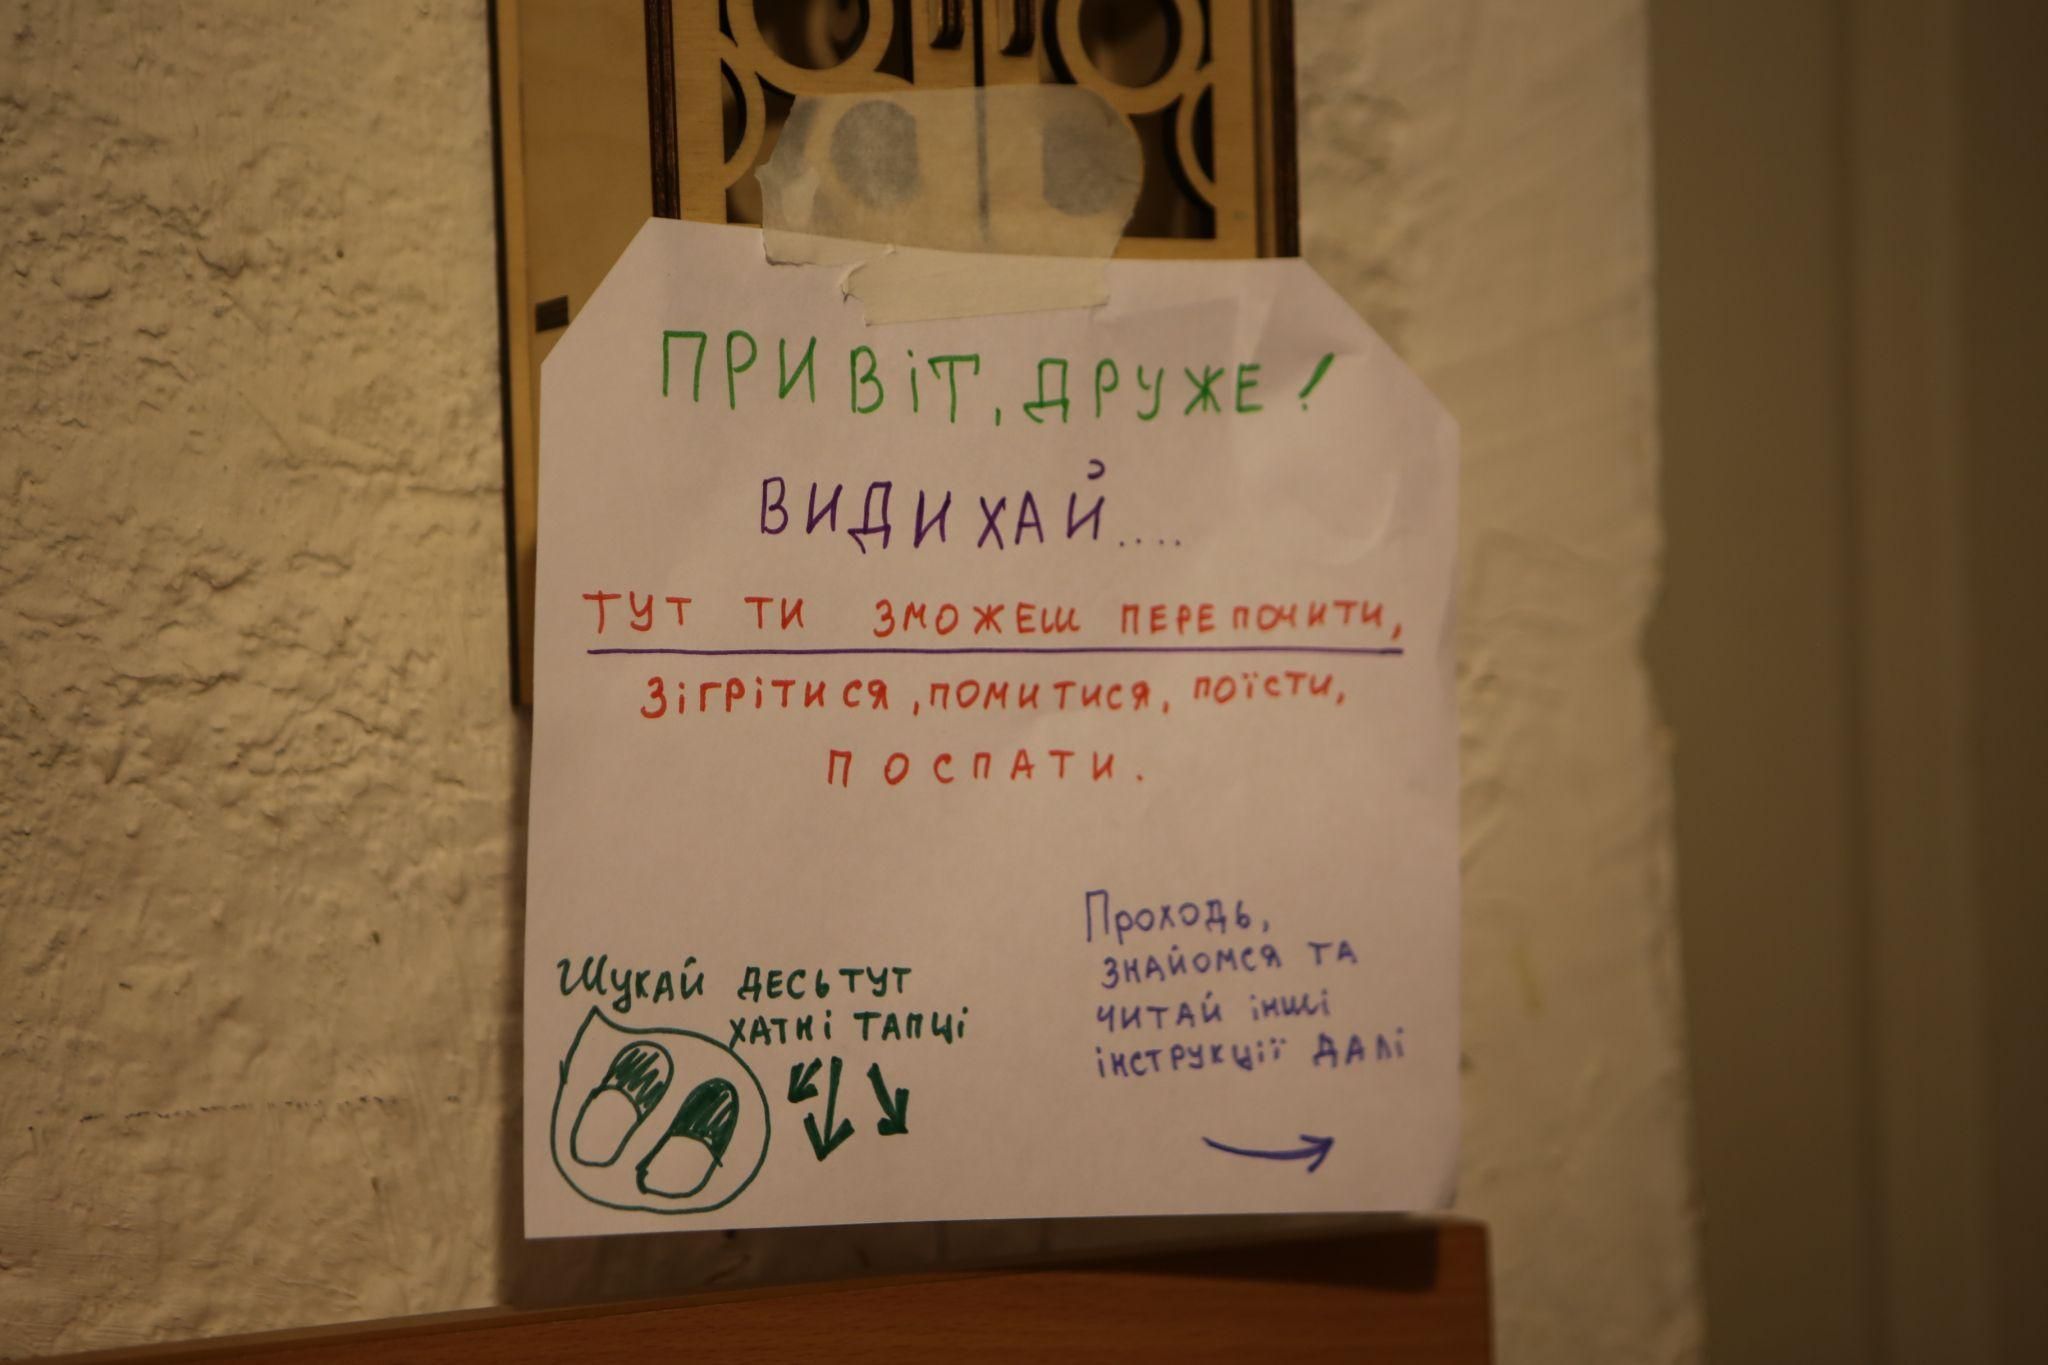 ПРИВіТ, ДРУЖЕ!
ВИДИХАЙ....
ТУТ ТИ ЗМОЖЕШ ПЕРЕПОЧИТИ,
ЗіГРіТИСЯ, ПОМИТИСЯ, ПОЇСТИ,
ПОСПАТИ.
Шукай десь тут
хатні тапці
Проходь,
знайомся та
читай інші
інструкції далі